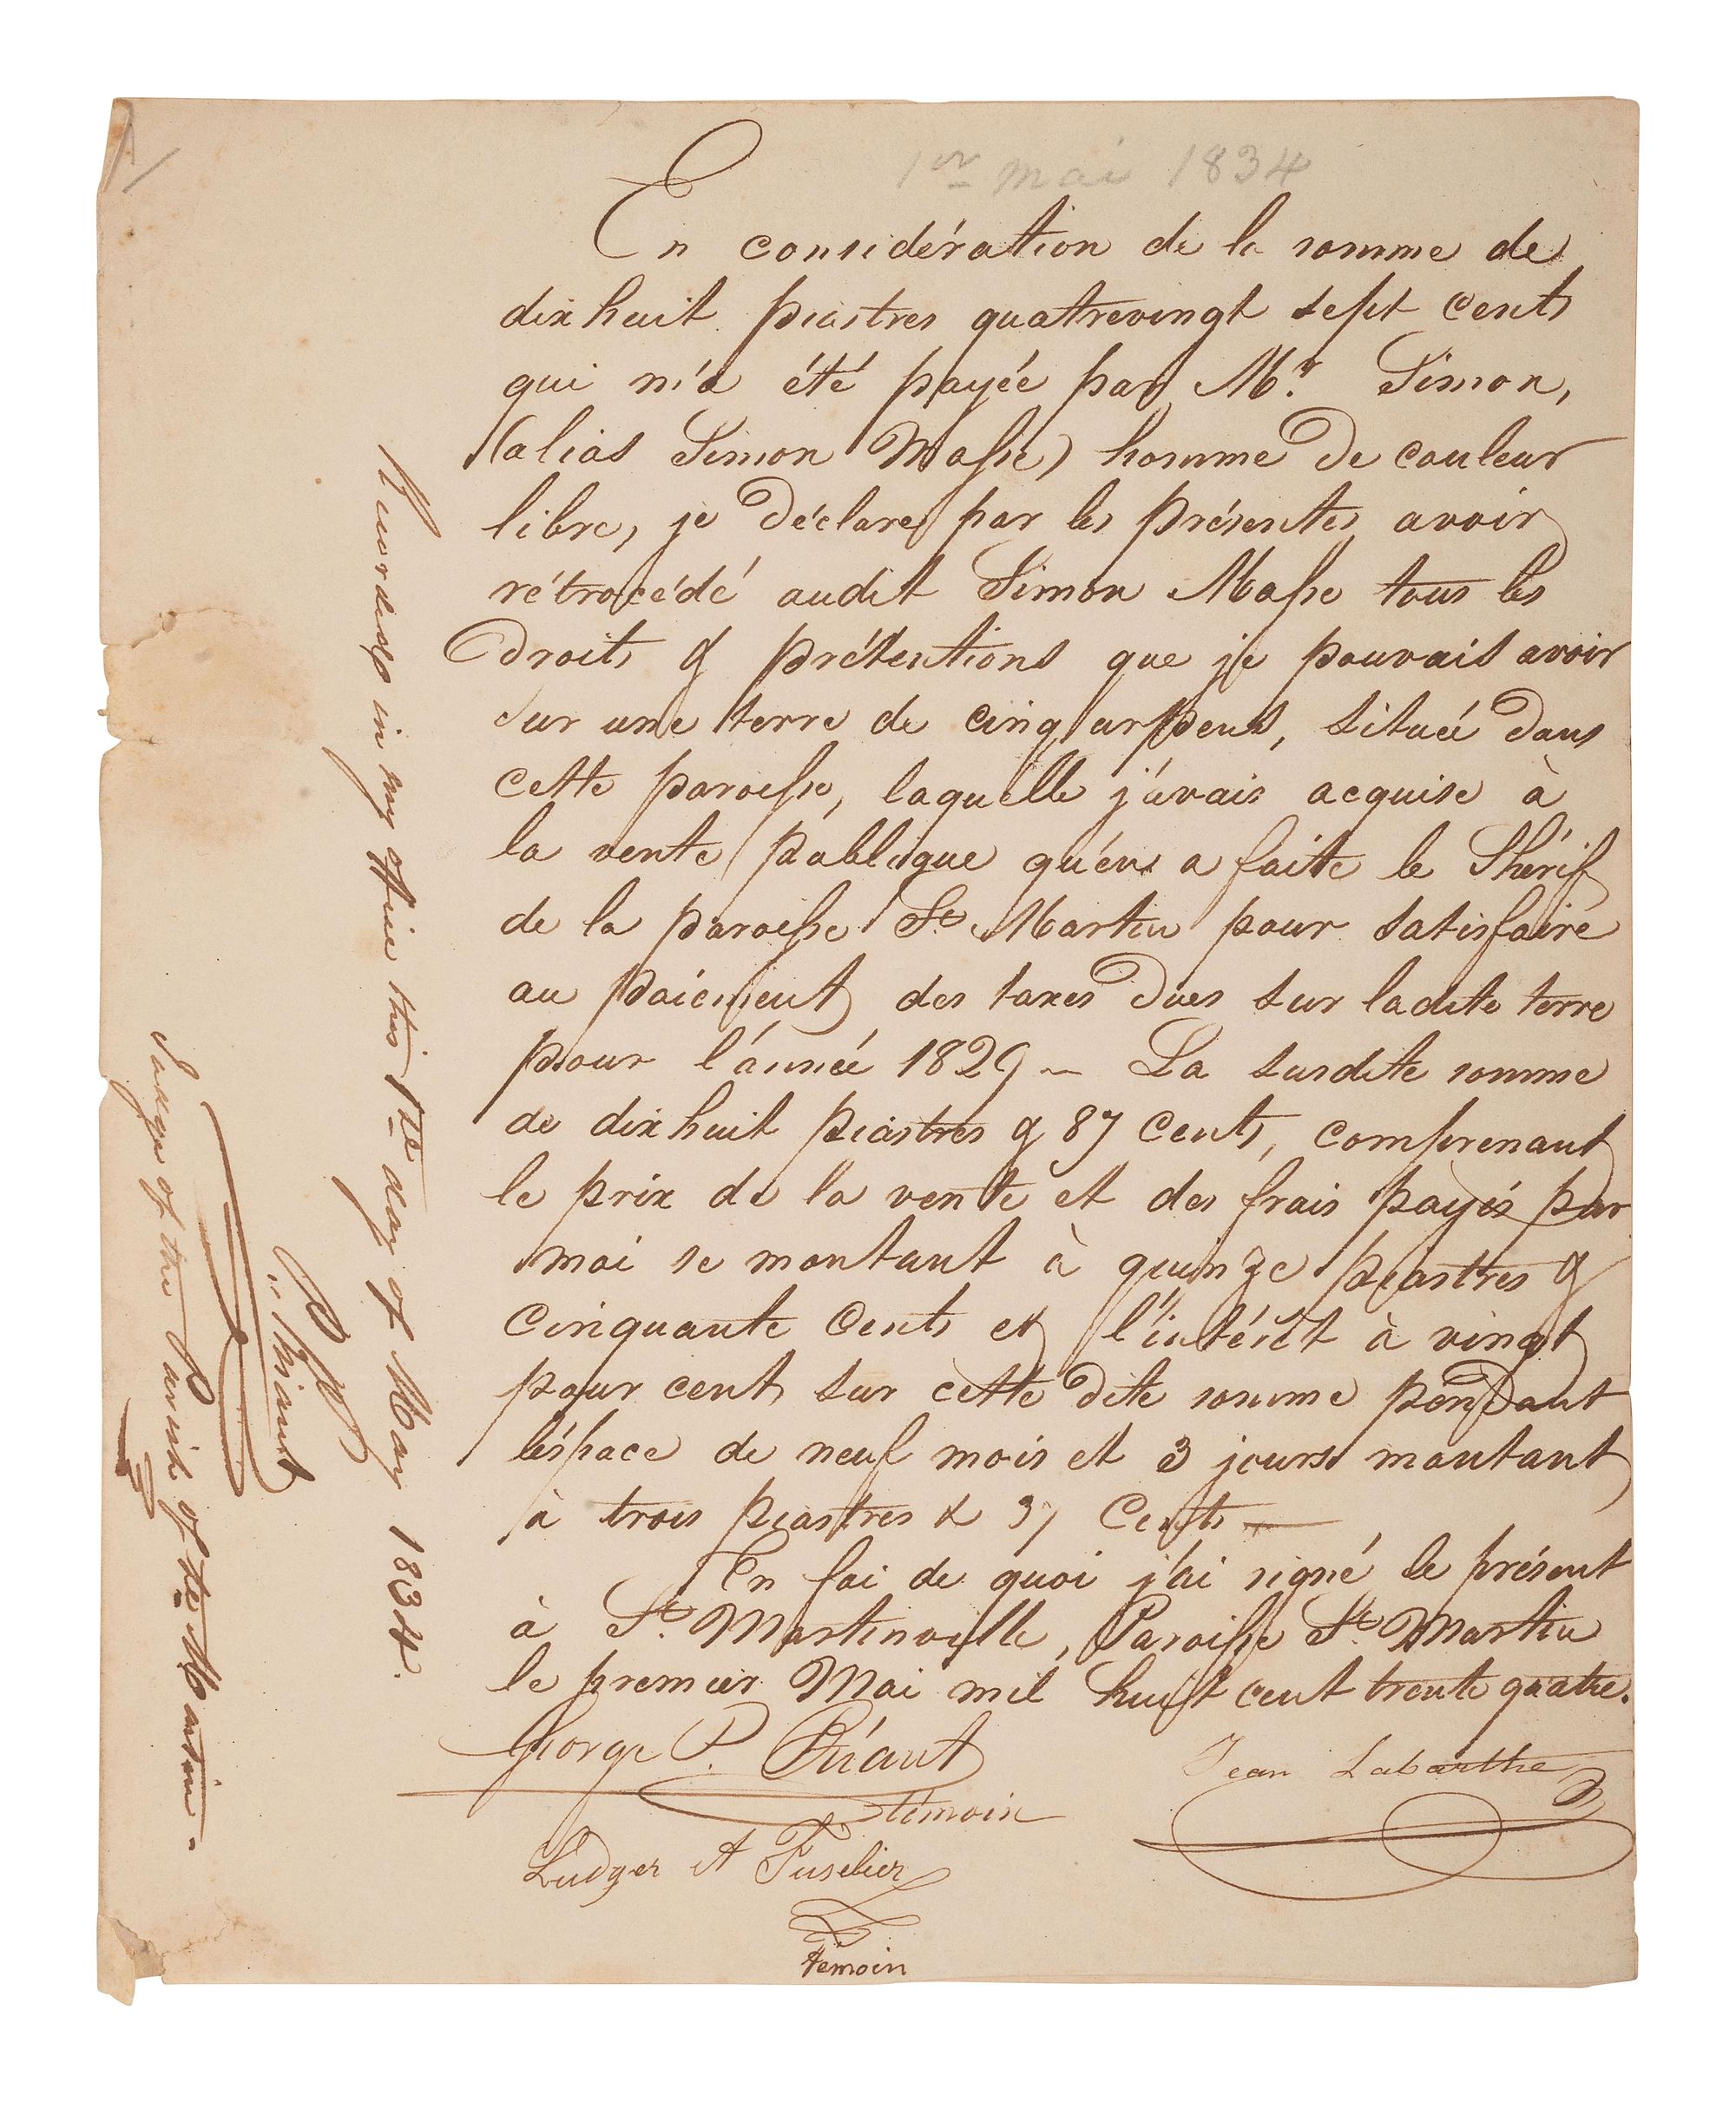 1er mai 1834
En considération de la somme de
dix huit piastres quatrevingt sept cents
qui m'a été payée par Mr. Simon,
(alias Simon Masse) homme de couleur
libre, je déclare par les présentes avoir
rétrocédé audit Simon Masse tous les
droits & prétentions que je pouvais avoir
sur une terre de cinq arpens, située dans
cette paroisse, laquelle j'avais acquise à
la vente publique qu'en a faite le Shérif
de la paroisse St Martin pour satisfaire
au paiement des taxes dues sur ladite terre
pour l'année 1829 — La susdite somme
de dix huit piastres & 87 cents, comprenant
le prix de la vente et des frais payés par
moi se montant à quinze piastres &
cinquante cents et l'intérêt à vingt
pour cent sur cette dite somme pendant
l'éspace de neuf mois et 3 jours montant
à trois piastres & 37 Cents —
En foi de quoi j'ai signé le présent
à St. Martinville, Paroisse St. Martin
le premier Mai mil huit cent trente quatre.
George P. Briant
témoin
Jean Labarthe
Ludger A Fuselier
témoin
Recorded in my office this 1st day of May 1834.
P. Briant
Judge of the Parish of St. Martin.